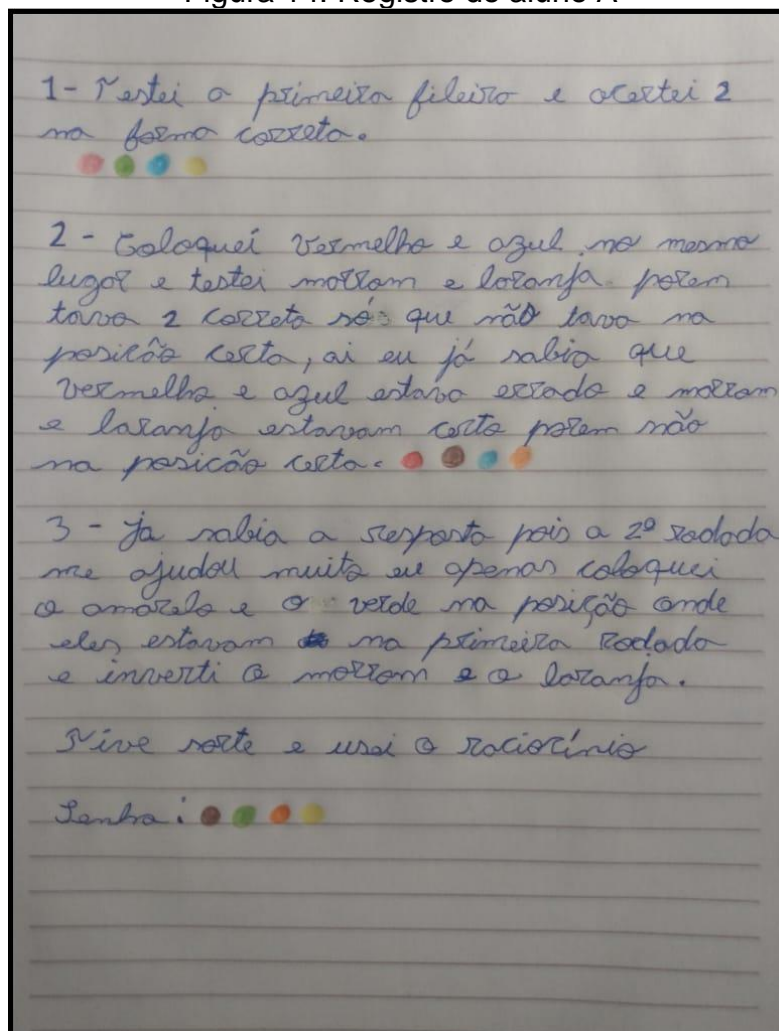 Figura 14: Registro do aluno A
1- Testei a primeira fileira e acertei 2
na forma correta.
2 - Coloquei vermelho e azul no mesmo
lugar e testei marrom e laranja porem
tava 2 correta só que não tava na
posição certa, ai eu já sabia que
vermelho e azul estava errado e marrom
e laranja estavam certo porem não
na posição certa.
3 - Ja sabia a resposta pois a 2º rodada
me ajudou muito eu apenas coloquei
o amarelo e o verde na posição onde
eles estavam na primeira rodada
e inverti o marrom e o laranja.
Tive sorte e usei o raciocínio
Senha: